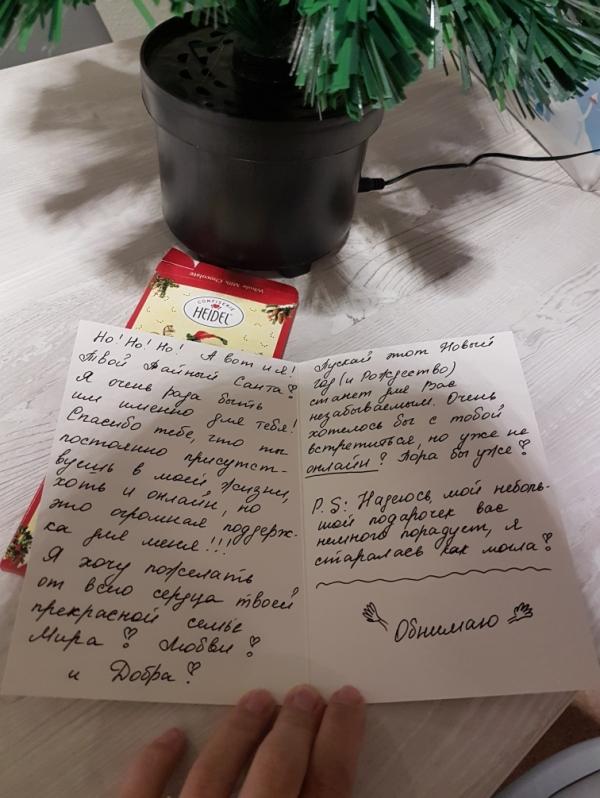 Whole Milk Chocolate
CONFISERIE
HEIDEL
Но! Но! Но! А вот и я!
Твой Тайный Санта!
Я очень рада быть
им именно для тебя!
Спасибо тебе, что ты
постоянно присутст-
вуешь в моей жизни,
хоть и онлайн, но
это огромная поддерж-
ка для меня!!!
Я хочу пожелать
от всего сердца твоей
прекрасной семье
Мира! Любви!
и Добра!
Пускай этот Новый
год (и Рождество)
станет для Вас
незабываемым. Очень
хотелось бы с тобой
встретиться, но уже не
онлайн! Пора бы уже!
P.S: Надеюсь, мой неболь-
шой подарочек вас
немного порадует, я
старалась как могла!
Обнимаю